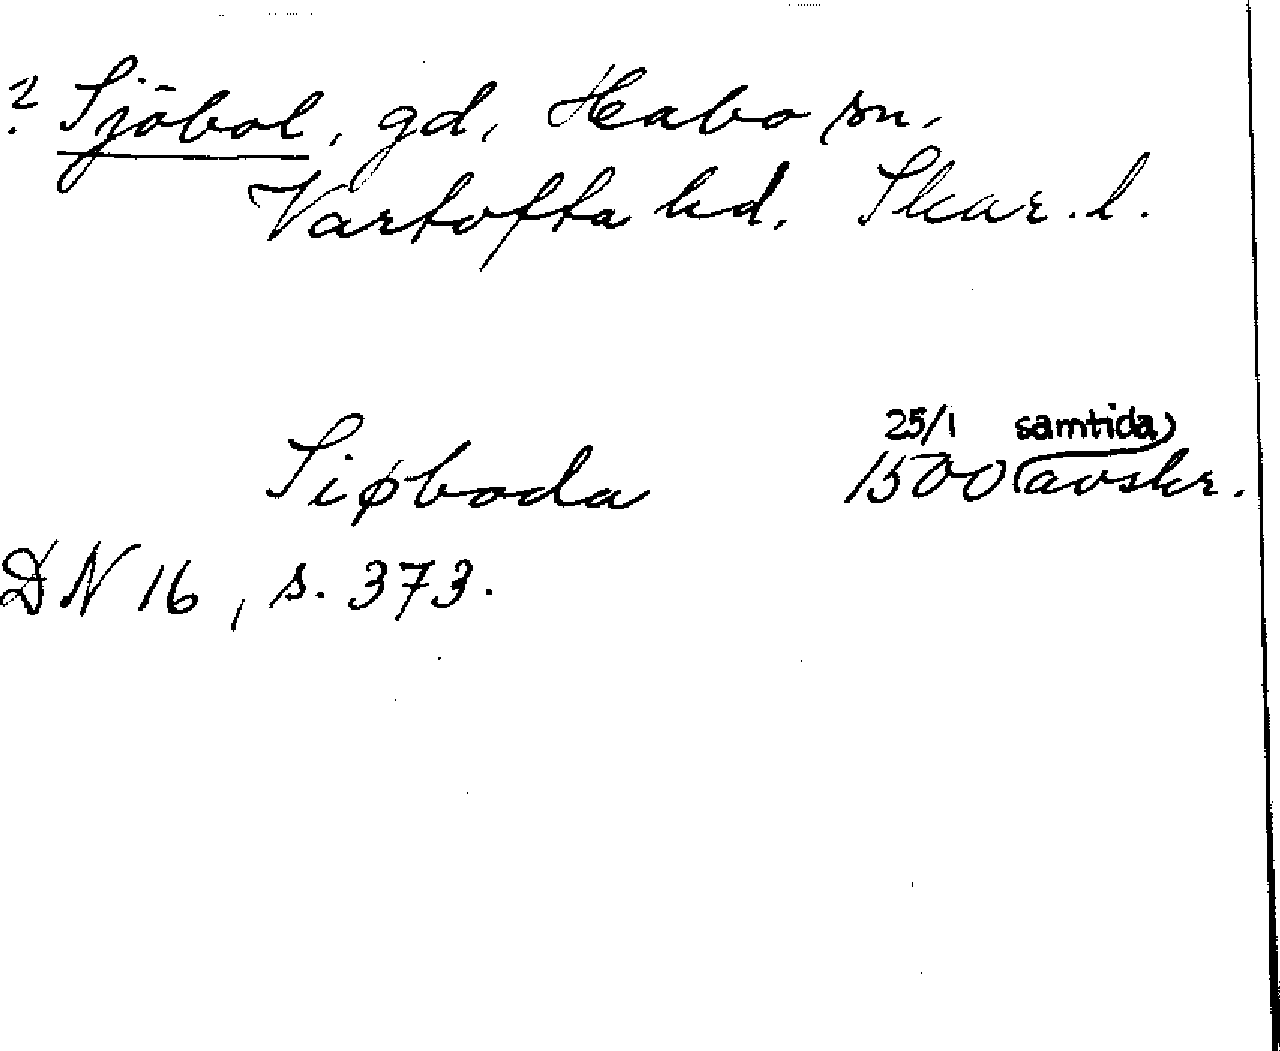 ? Sjöbol, gd, Habo sn.
Vartofta hd. Skar. l.
25/1 samtida
Siøboda 1500 avskr.
DN 16, s. 373.